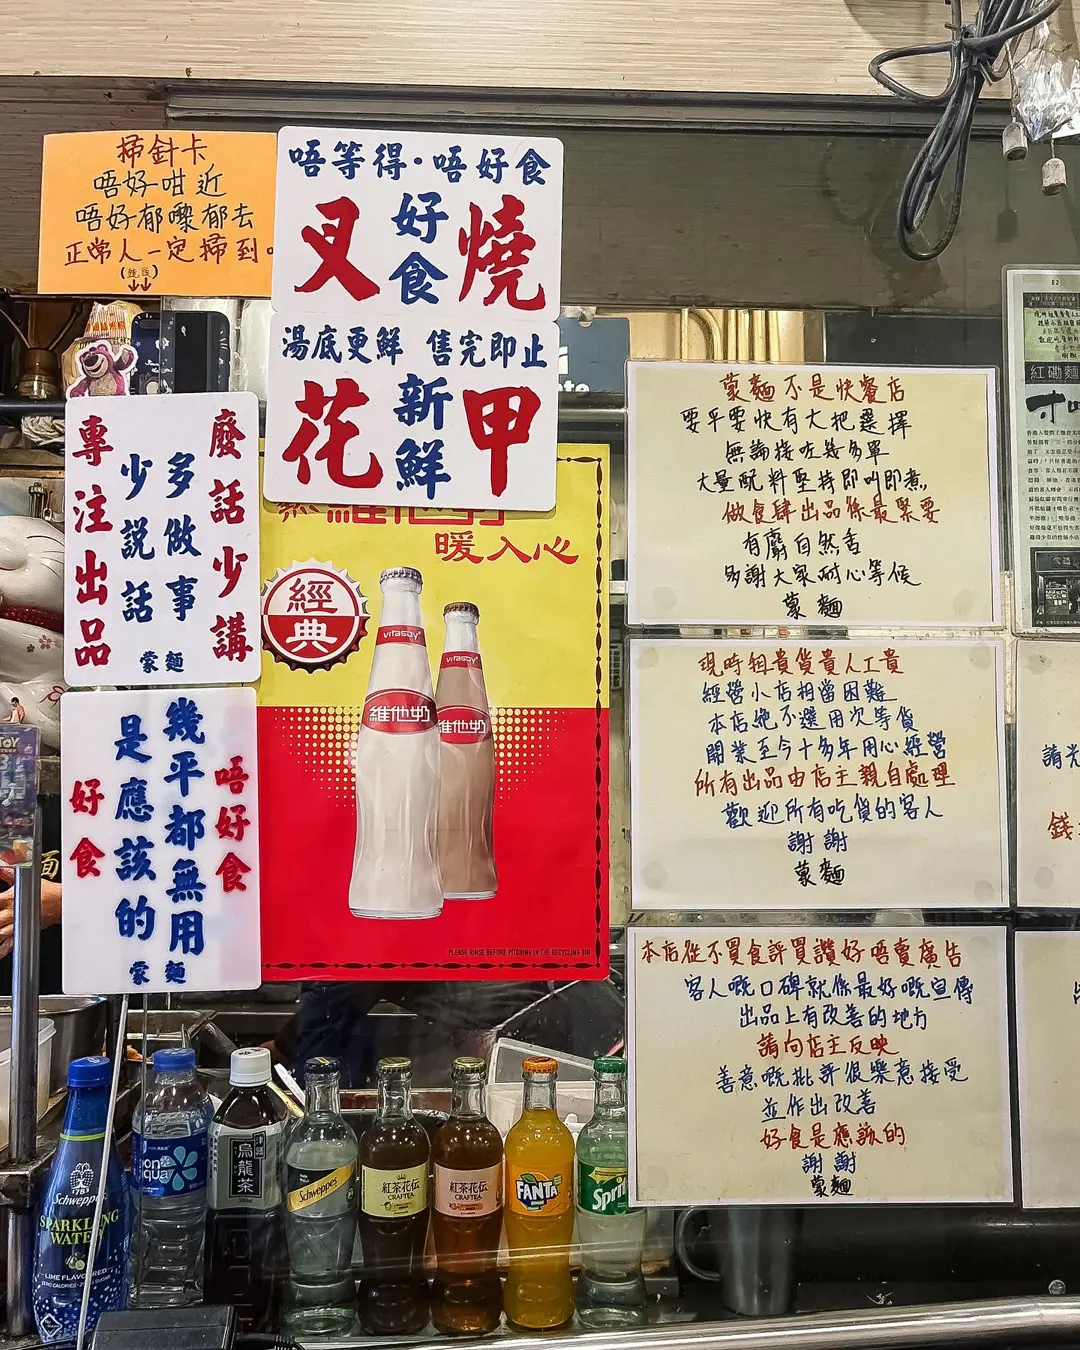 掃針卡
唔好咁近
唔好郁嚟郁去
正常人一定掃到。
唔等得·唔好食
叉
好食
燒
湯底更鮮 售完即止
花
新鮮
甲
廢話少講
多做事
少說話
專注出品
蒙麵
唔好食
幾平都無用
是應該的
好食
蒙麵
維他奶
暖入心
經典
vitasoy
維他奶
vitasoy
維他奶
PLEASE RINSE BEFORE PITCHING IN THE RECYCLING BIN
蒙麵不是快餐店
要平要快有大把選擇
無論接咗幾多單
大量配料堅持即叫即煮,
做食肆出品係最緊要
有麝自然香
多謝大家耐心等候
蒙麵
現時租貴貨貴人工貴
經營小店相當困難
本店絕不選用次等貨
開業至今十多年用心經營
所有出品由店主親自處理
歡迎所有吃貨的客人
謝謝
蒙麵
本店從不買食評買讚好唔賣廣告
客人嘅口碑就係最好嘅宣傳
出品上有改善的地方
請向店主反映
善意嘅批評很樂意接受
並作出改善
好食是應該的
謝謝
蒙麵
E2
紅磡麵
請光
錢
面
1783
Schweppes
SPARKLING WATER
LIME FLAVOURED
bonaqua
烏龍茶
Schweppes
紅茶花伝
CRAFTEA
紅茶花伝
CRAFTEA
FANTA
Sprite